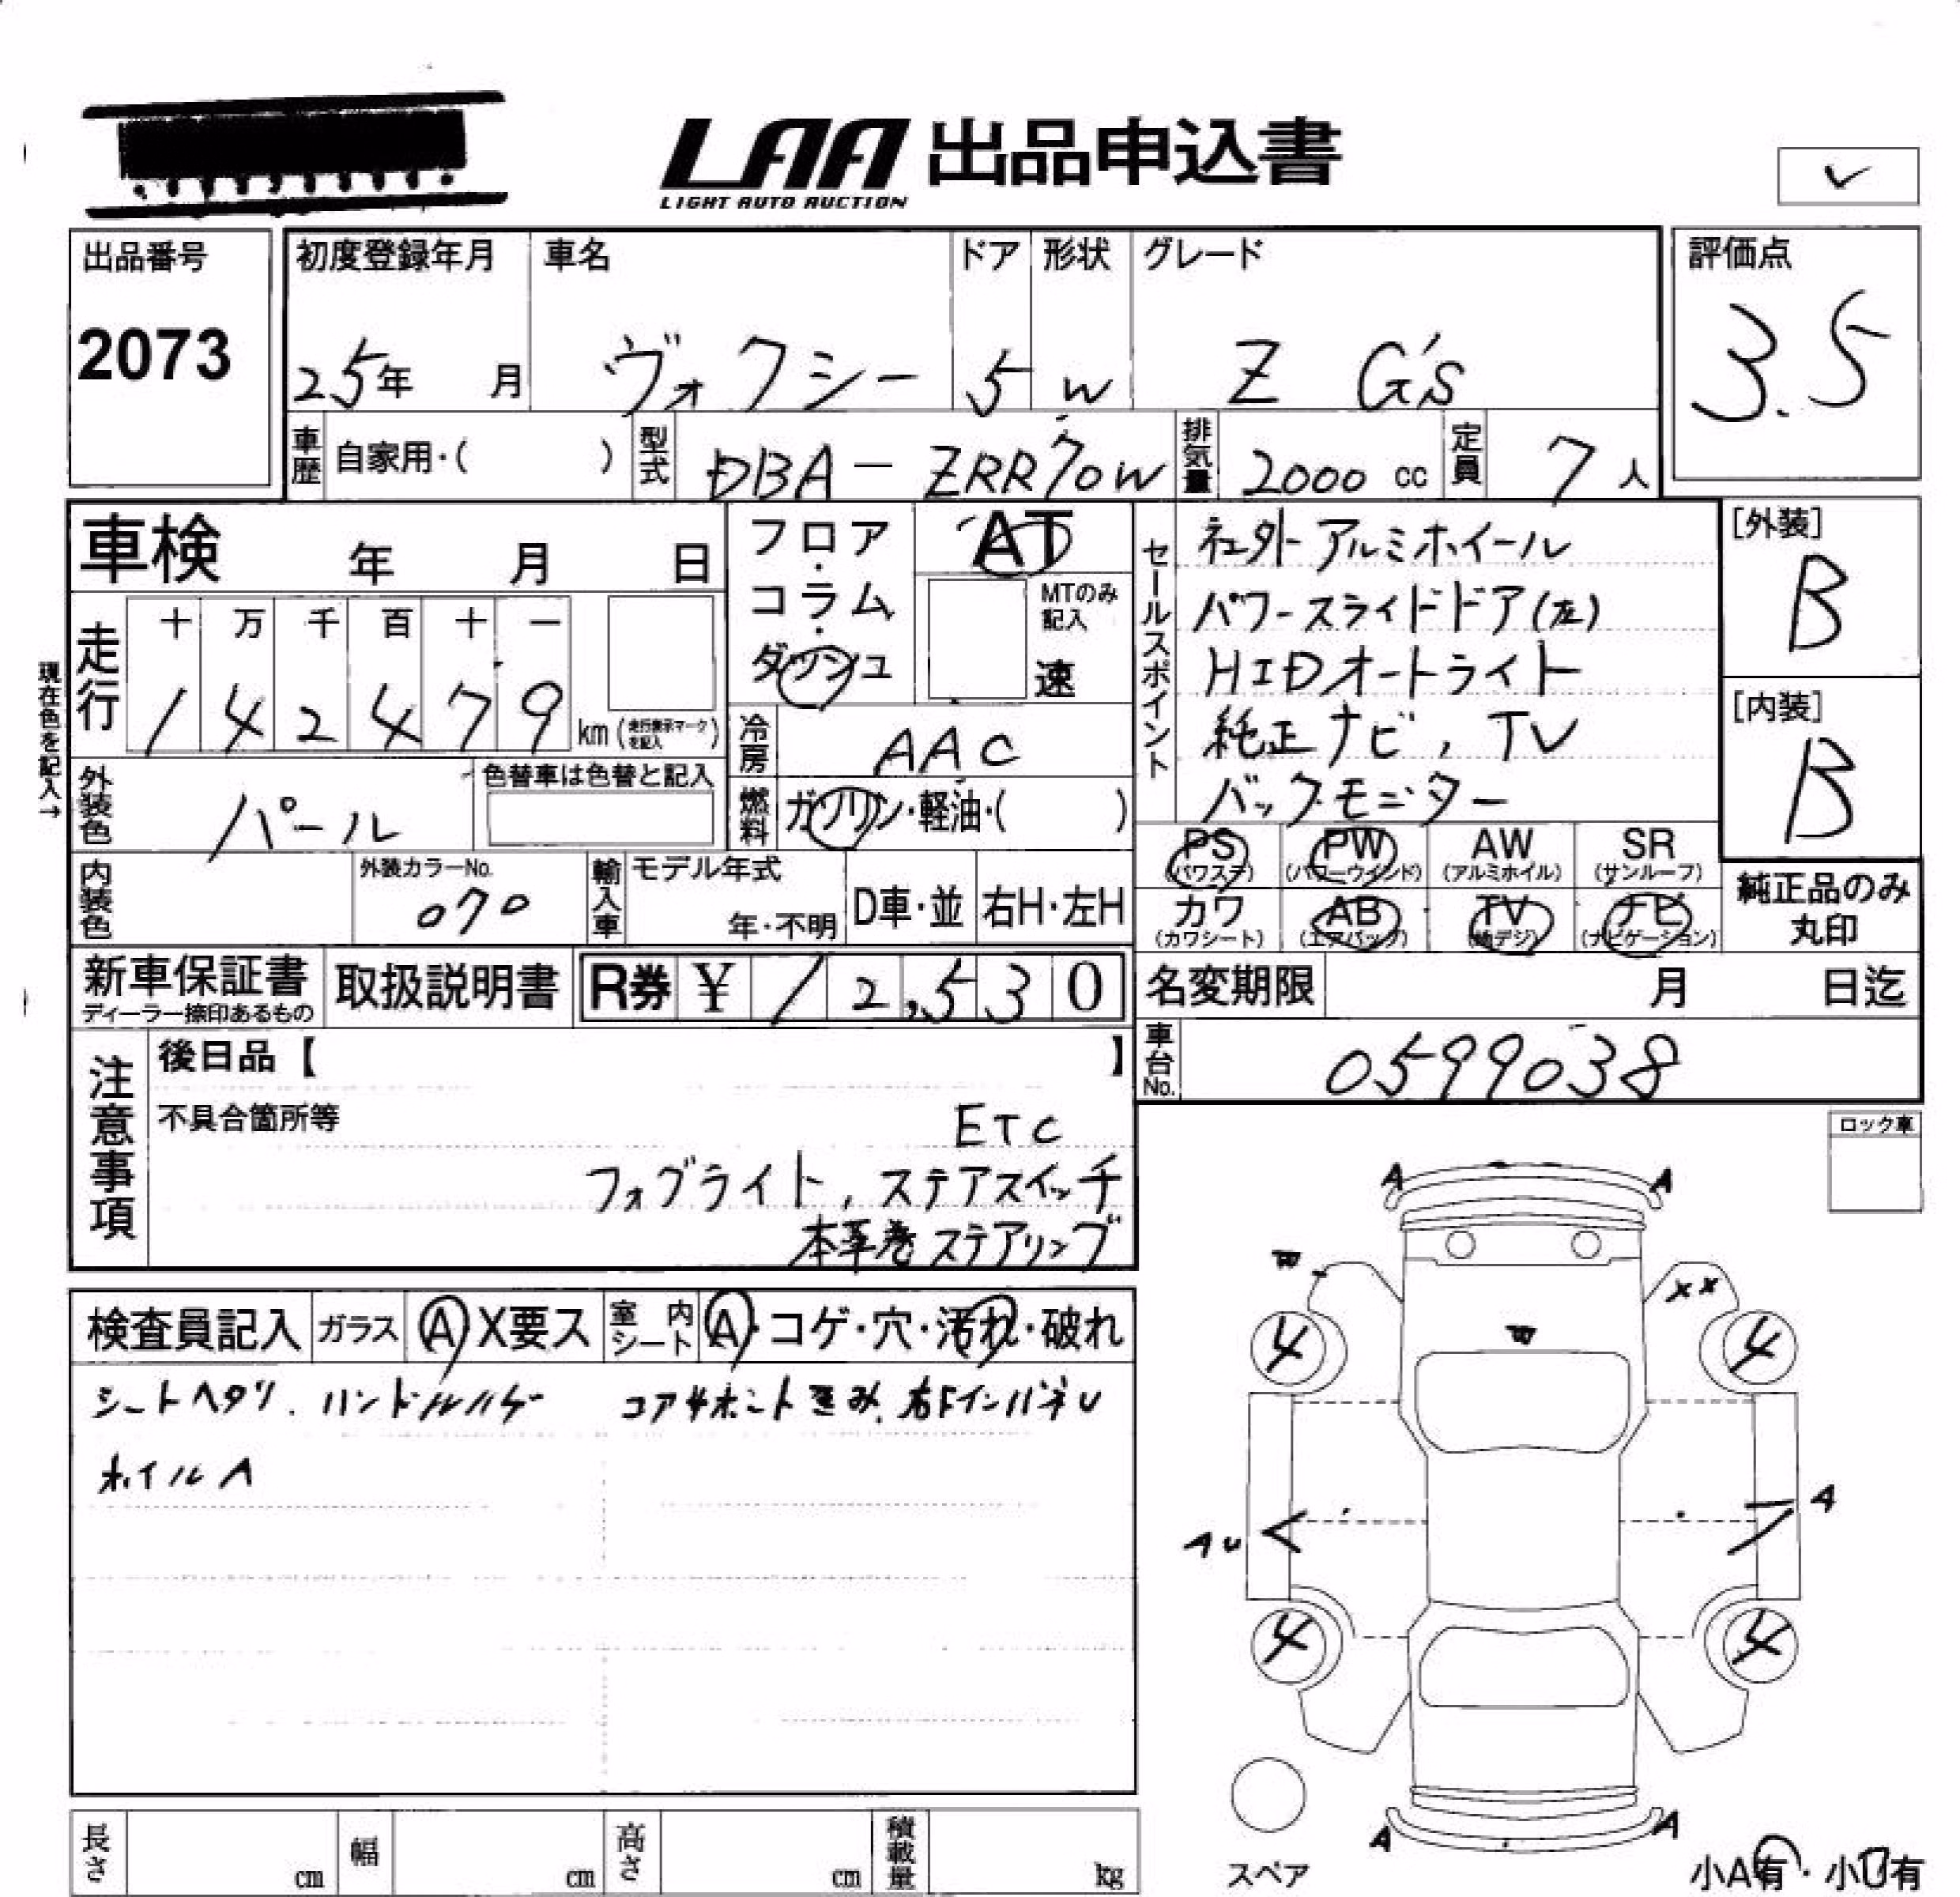 LAA 出品申込書
LIGHT AUTO AUCTION
✓
出品番号
2073
初度登録年月
25年 月
車名
ヴォクシー
ドア
5
形状
W
グレード
Z G's
評価点
3.5
車歴 自家用・( )
型式 DBA-ZRR70W
排気量 2000 cc
定員 7人
車検 年 月 日
フロア・コラム・ダッシュ
AT
MTのみ記入
速
セールスポイント
社外アルミホイール
パワースライドドア(左)
HIDオートライト
純正ナビ, TV
バックモニター
[外装]
B
[内装]
B
現在色を記入→
走行
十 万 千 百 十 一
1 4 2 4 7 9 km (走行表示マークを記入)
冷房 AAC
外装色 パール
色替車は色替と記入
燃料 ガソリン・軽油・( )
PS (パワステ)
PW (パワーウインド)
AW (アルミホイル)
SR (サンルーフ)
カワ (カワシート)
AB (エアバッグ)
TV (地デジ)
ナビ (ナビゲーション)
純正品のみ
丸印
内装色
外装カラーNo.
070
輸入車 モデル年式
年・不明
D車・並
右H・左H
新車保証書
ディーラー捺印あるもの
取扱説明書
R券 ¥ 12,530
名変期限 月 日迄
車台No. 0599038
注意事項
後日品【 】
不具合箇所等
ETC
フォグライト, ステアスイッチ
本革巻ステアリング
ロック車
検査員記入
ガラス A X要ス
室内シート A・コゲ・穴・汚れ・破れ
シートヘタリ. ハンドルハゲ
コアサポート歪み. 右FインパネU
ホイルA
A A
W
X X
W
4 4
A
AU
4 4
A A
スペア
小A有・小U有
長さ cm
幅 cm
高さ cm
積載量 kg